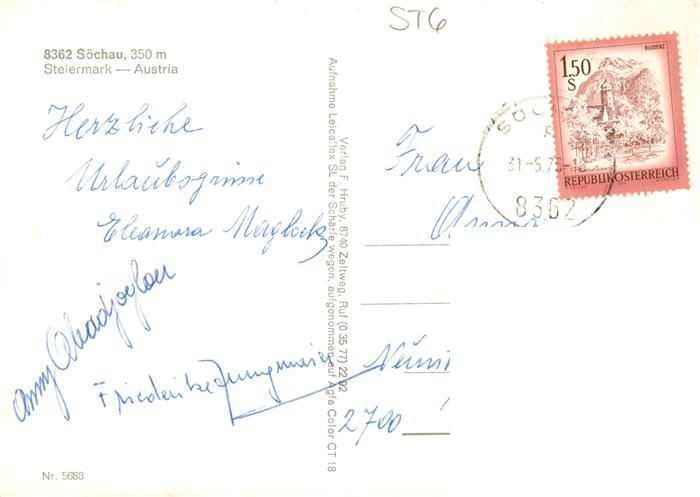 ST6
8362 Söchau, 350 m
Steiermark — Austria
Herzliche
Urlaubsgrüsse
Eleonora
Friederike Jungmeier
Nr. 5688
Verlag F. Hruby, 8740 Zeltweg, Ruf (0 35 77) 22 92
Aufnahme Leicaflex SL der Schärfe wegen, aufgenommen auf Agfa Color CT 18
BLUDENZ
1.50
S
REPUBLIK ÖSTERREICH
8362
Frau
2700